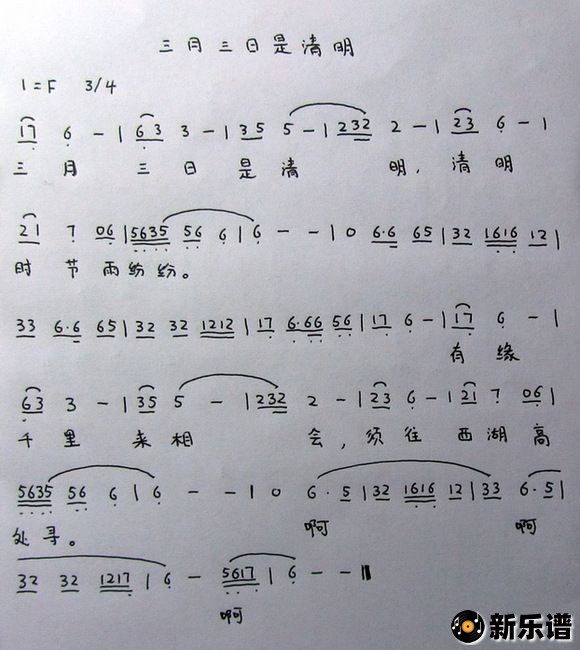 三月三日是清明
1=F 3/4
17 6 - | 63 3 - | 35 5 - | 232 2 - | 23 6 - |
三月 三日 是清 明，清明
21 7 06 | 5635 56 6 | 6 - - | 0 6·6 65 | 32 1616 12 |
时节雨纷纷。
33 6·6 65 | 32 32 1212 | 17 6·66 56 | 17 6 - | 17 6 - |
有缘
63 3 - | 35 5 - | 232 2 - | 23 6 - | 21 7 06 |
千里 来相 会，须往 西湖高
5635 56 6 | 6 - - | 0 6·5 | 32 1616 12 | 33 6·5 |
处寻。 啊 啊
32 32 1217 | 6 - 5617 | 6 - - ‖
啊
新乐谱